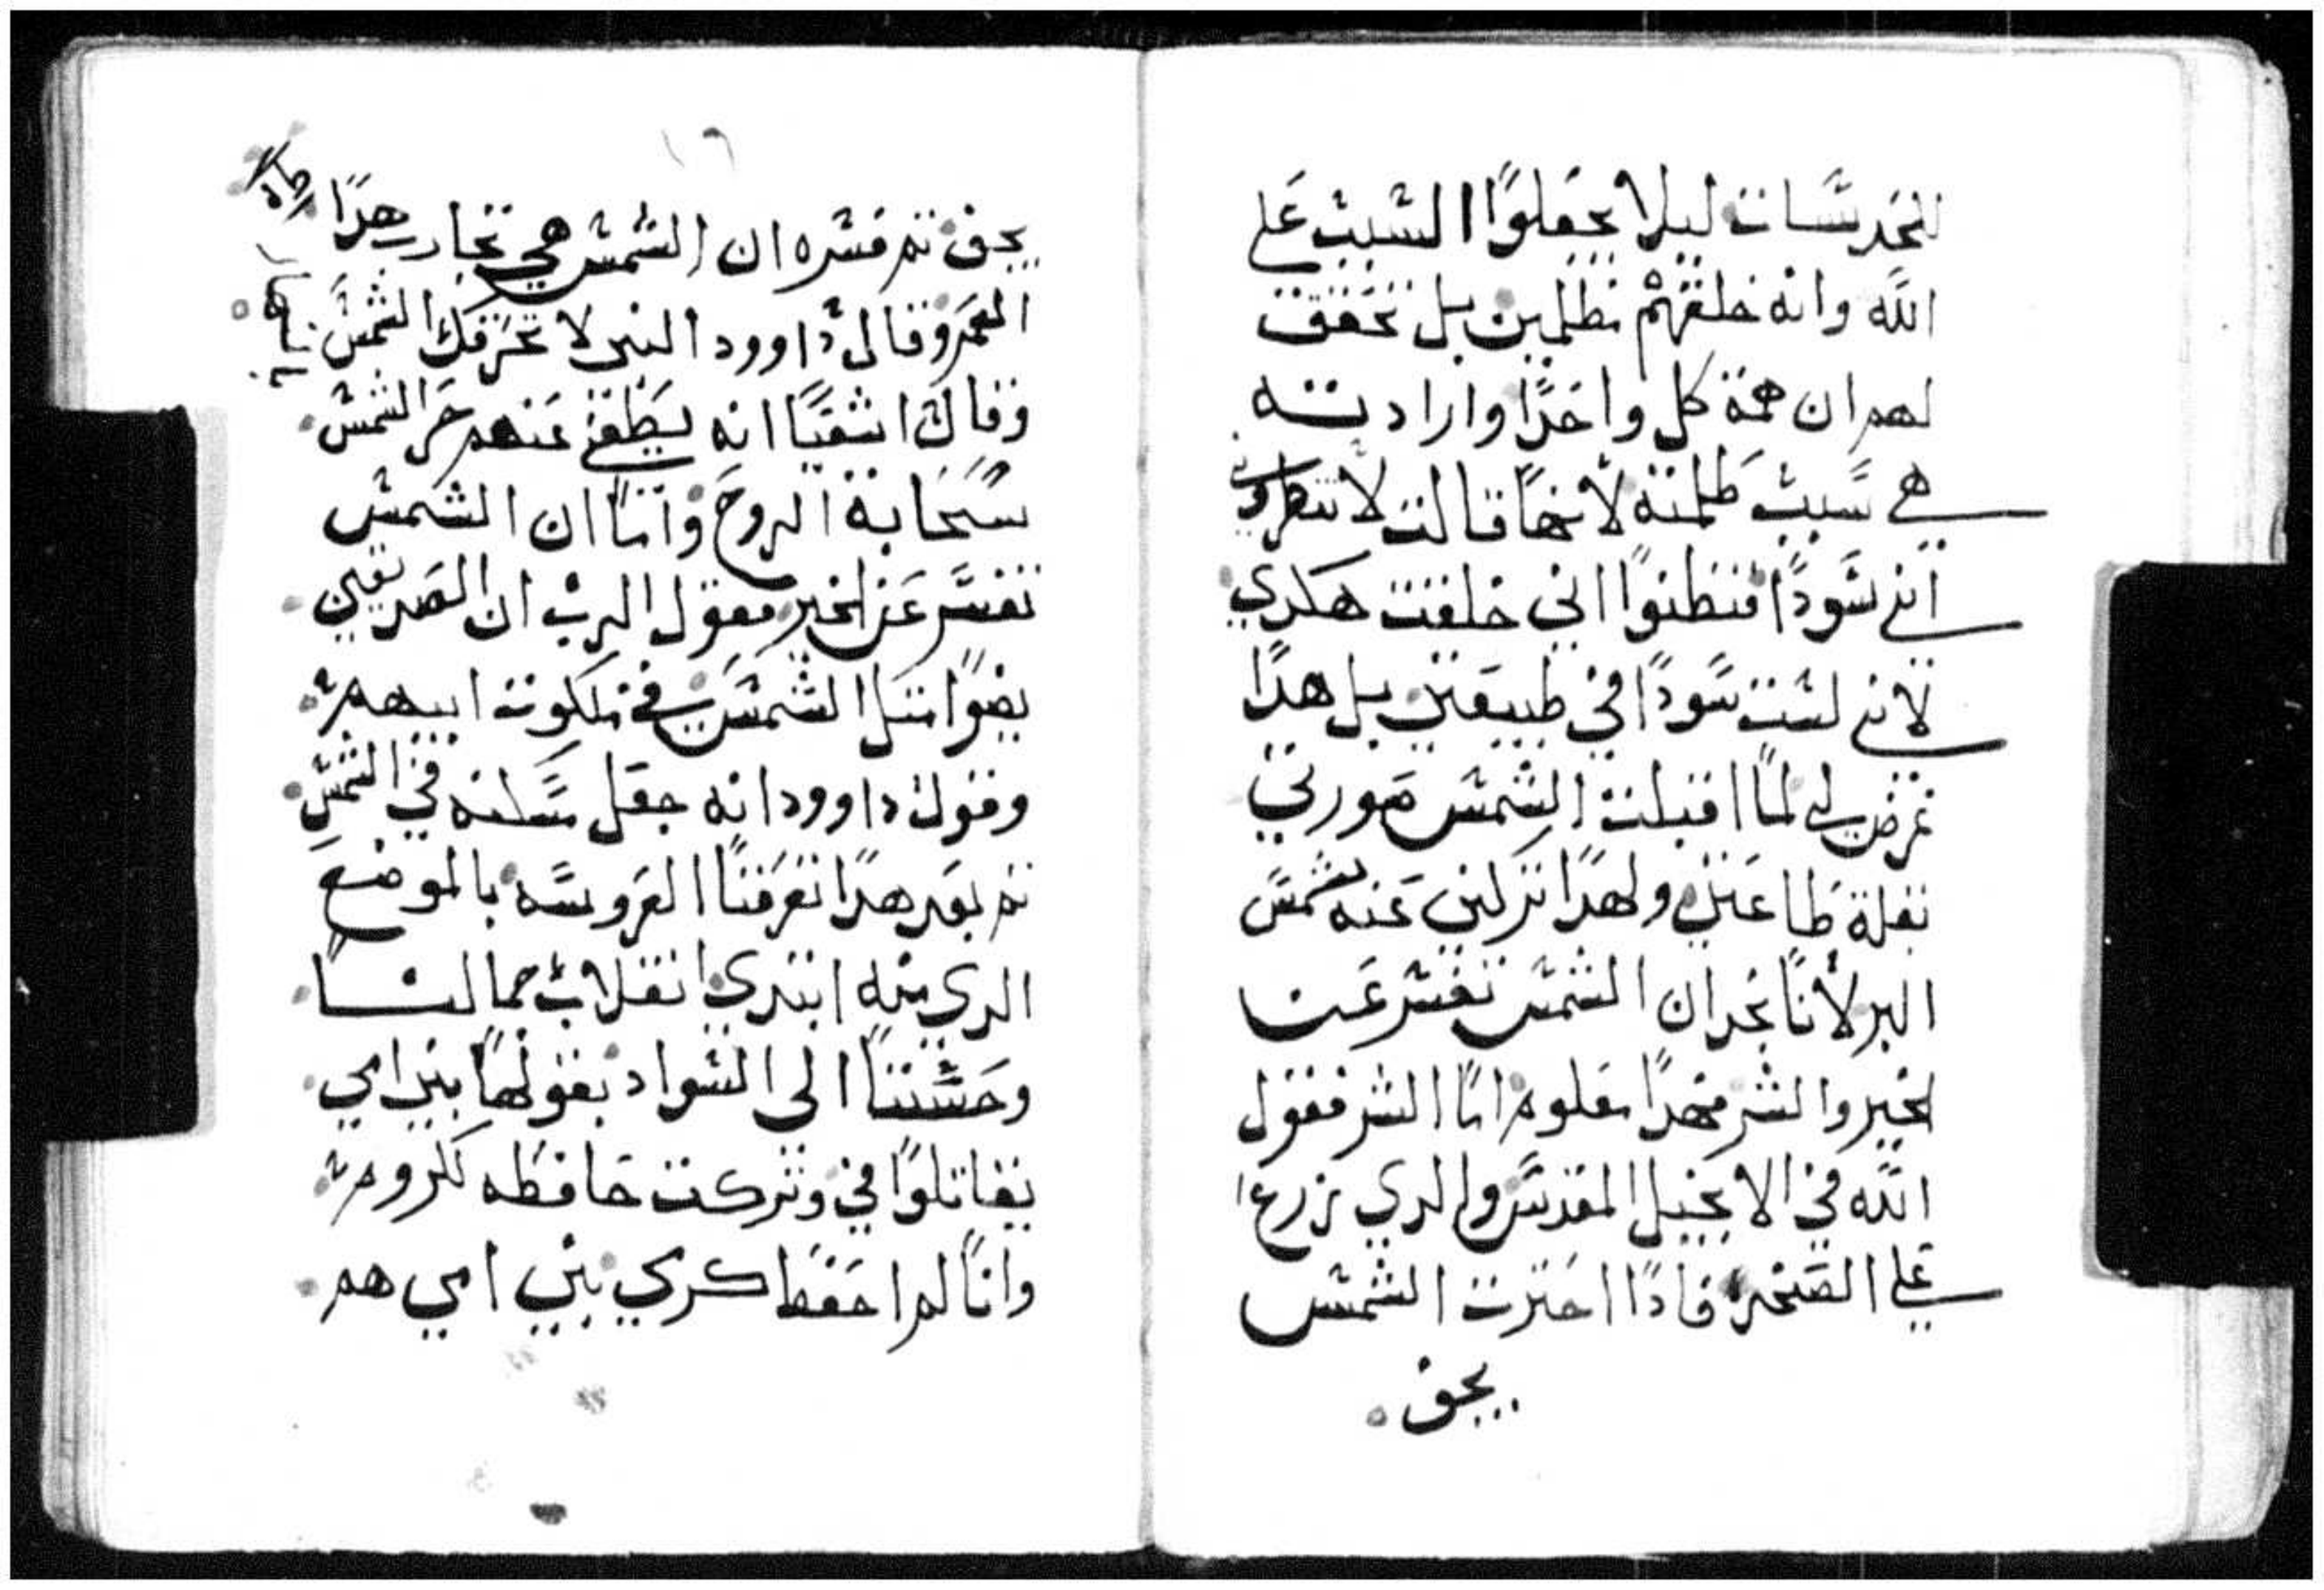 لليلا يجعلوا السبب على
الله وانه خلقهم مظلمين بل تحقق
لهم ان همة كل واحدًا وارادته
هي سبب ظلمته لانها قالت لا تنظروا
انني سودا فتظنوا اني خلقت هكدي
لانني لست سودا في طبيعتي بل هدا
عرض لي لما اقبلت الشمس صورتي
بقلة طاعتي ولهدا تركتني عنه شمس
البر لانا نجد ان الشمس تفسر عن
الخير والشر فهدا معلوم اما الشر فقول
الله في الانجيل المقدس والدي زرع
على الصخره فادا احترت الشمس
يجف
١٦
يجف ثم فسره ان الشمس هي تجارب هدا
العمر وقال داوود النبي لا تحرقك الشمس بالنهار
وقال اشعيا انه يظلل عنهم حر الشمس
سحابة الروح واما ان الشمس
تفسر عن الخير فقول الرب ان الصديقين
يضوا متل الشمس في ملكوت ابيهم
وقول داوود انه جعل مسكنه في الشمس
تم بعد هدا تعرفنا العروسه بالموضع
الدي منه ابتدي انقلاب جمالنا
وحسننا الى السواد بقولها بني امي
يقاتلوا في وتركت حافظه للكروم
وانا لم احفظ كرمي بني امي هم